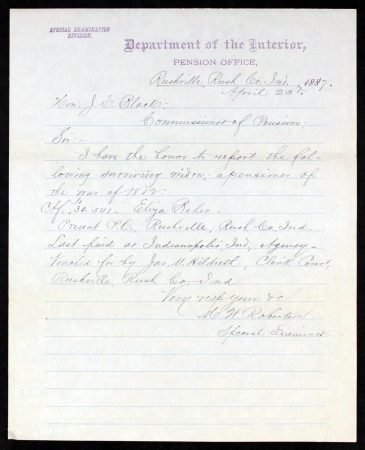 SPECIAL EXAMINATION
DIVISION.
Department of the Interior,
PENSION OFFICE,
Rushville, Rush Co. Ind., 1887.
April 23d
Hon. J. C. Black:
Commissioner of Pensions
Sir:-
I have the honor to report the fol-
lowing surviving widow - a pensioner of
the war of 1812:
Ctf. 30.541 - Eliza Baker -
Present P.O., Rushville, Rush Co. Ind.
Last paid at Indianapolis Ind. Agency -
Vouched for by Jas. M. Hildreth, Clerk Court,
Rushville, Rush Co. Ind
Very resp. yours &c
M. W.
Special Examiner